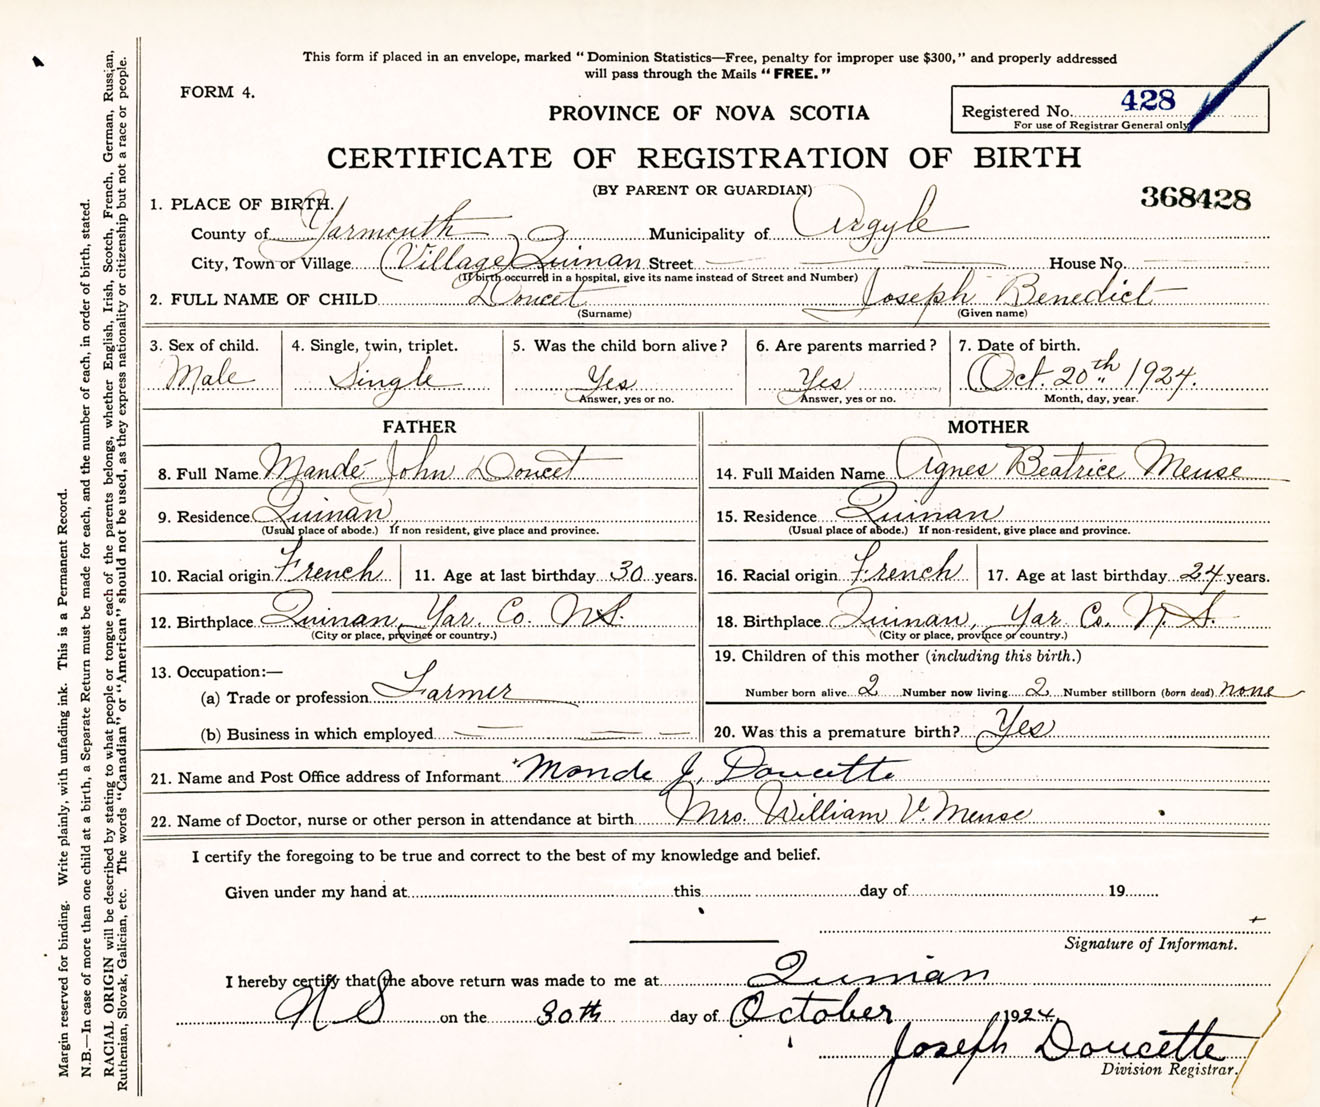 This form if placed in an envelope, marked "Dominion Statistics—Free, penalty for improper use $300," and properly addressed
will pass through the Mails "FREE."
FORM 4.
PROVINCE OF NOVA SCOTIA
Registered No. 428
For use of Registrar General only
CERTIFICATE OF REGISTRATION OF BIRTH
(BY PARENT OR GUARDIAN)
368428
1. PLACE OF BIRTH.
County of Yarmouth Municipality of Argyle
City, Town or Village (Village) Quinan Street House No.
(If birth occurred in a hospital, give its name instead of Street and Number)
2. FULL NAME OF CHILD Doucet Joseph Benedict
(Surname) (Given name)
3. Sex of child. 4. Single, twin, triplet. 5. Was the child born alive? 6. Are parents married? 7. Date of birth.
Male Single Yes Yes Oct. 20th 1924.
Answer, yes or no. Answer, yes or no. Month, day, year.
FATHER MOTHER
8. Full Name Mandé John Doucet 14. Full Maiden Name Agnes Beatrice Meuse
9. Residence Quinan 15. Residence Quinan
(Usual place of abode.) If non resident, give place and province. (Usual place of abode.) If non-resident, give place and province.
10. Racial origin French 11. Age at last birthday 30 years. 16. Racial origin French 17. Age at last birthday 24 years.
12. Birthplace Quinan, Yar. Co. N.S. 18. Birthplace Quinan, Yar Co. N.S.
(City or place, province or country.) (City or place, province or country.)
13. Occupation:— 19. Children of this mother (including this birth.)
(a) Trade or profession Farmer Number born alive 2 Number now living 2 Number stillborn (born dead) none
(b) Business in which employed 20. Was this a premature birth? Yes
21. Name and Post Office address of Informant Mande J. Doucette
22. Name of Doctor, nurse or other person in attendance at birth Mrs. William V. Meuse
I certify the foregoing to be true and correct to the best of my knowledge and belief.
Given under my hand at this day of 19
Signature of Informant.
I hereby certify that the above return was made to me at Quinan
N S on the 30th day of October 1924
Joseph Doucette
Division Registrar.
Margin reserved for binding. Write plainly, with unfading ink. This is a Permanent Record.
N.B.—In case of more than one child at a birth, a Separate Return must be made for each, and the number of each, in order of birth, stated.
RACIAL ORIGIN will be described by stating to what people or tongue each of the parents belongs, whether English, Irish, Scotch, French, German, Russian,
Ruthenian, Slovak, Galician, etc. The words "Canadian" or "American" should not be used, as they express nationality or citizenship but not a race or people.